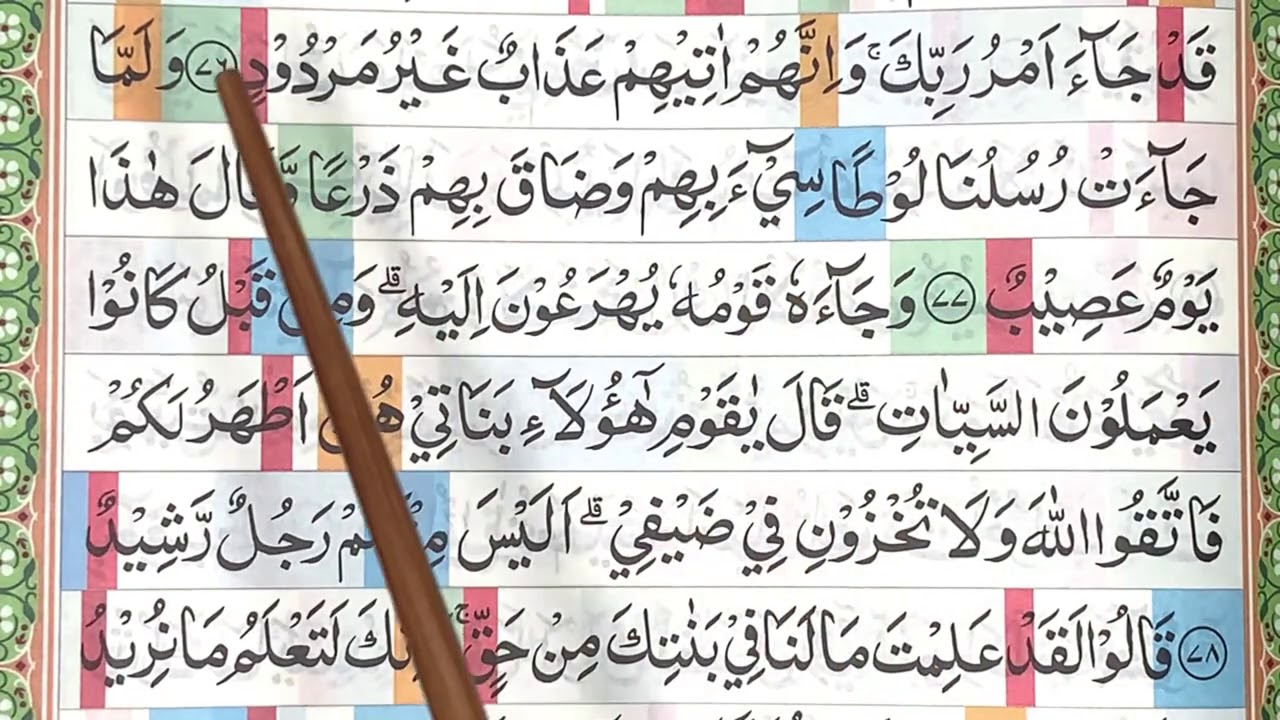 قَدْ جَآءَ اَمْرُ رَبِّكَ ۚ وَاِنَّهُمْ اٰتِيْهِمْ عَذَابٌ غَيْرُ مَرْدُوْدٍ ﴿٧٦﴾ وَلَمَّا
جَآءَتْ رُسُلُنَا لُوْطًا سِيْٓءَ بِهِمْ وَضَاقَ بِهِمْ ذَرْعًا وَّقَالَ هٰذَا
يَوْمٌ عَصِيْبٌ ﴿٧٧﴾ وَجَآءَهٗ قَوْمُهٗ يُهْرَعُوْنَ اِلَيْهِ ۗ وَمِنْ قَبْلُ كَانُوْا
يَعْمَلُوْنَ السَّيِّاٰتِ ۗ قَالَ يٰقَوْمِ هٰٓؤُلَآءِ بَنَاتِيْ هُنَّ اَطْهَرُ لَكُمْ
فَاتَّقُوا اللّٰهَ وَلَا تُخْزُوْنِ فِيْ ضَيْفِيْ ۗ اَلَيْسَ مِنْكُمْ رَجُلٌ رَّشِيْدٌ
﴿٧٨﴾ قَالُوْا لَقَدْ عَلِمْتَ مَا لَنَا فِيْ بَنٰتِكَ مِنْ حَقٍّ ۚ وَاِنَّكَ لَتَعْلَمُ مَا نُرِيْدُ